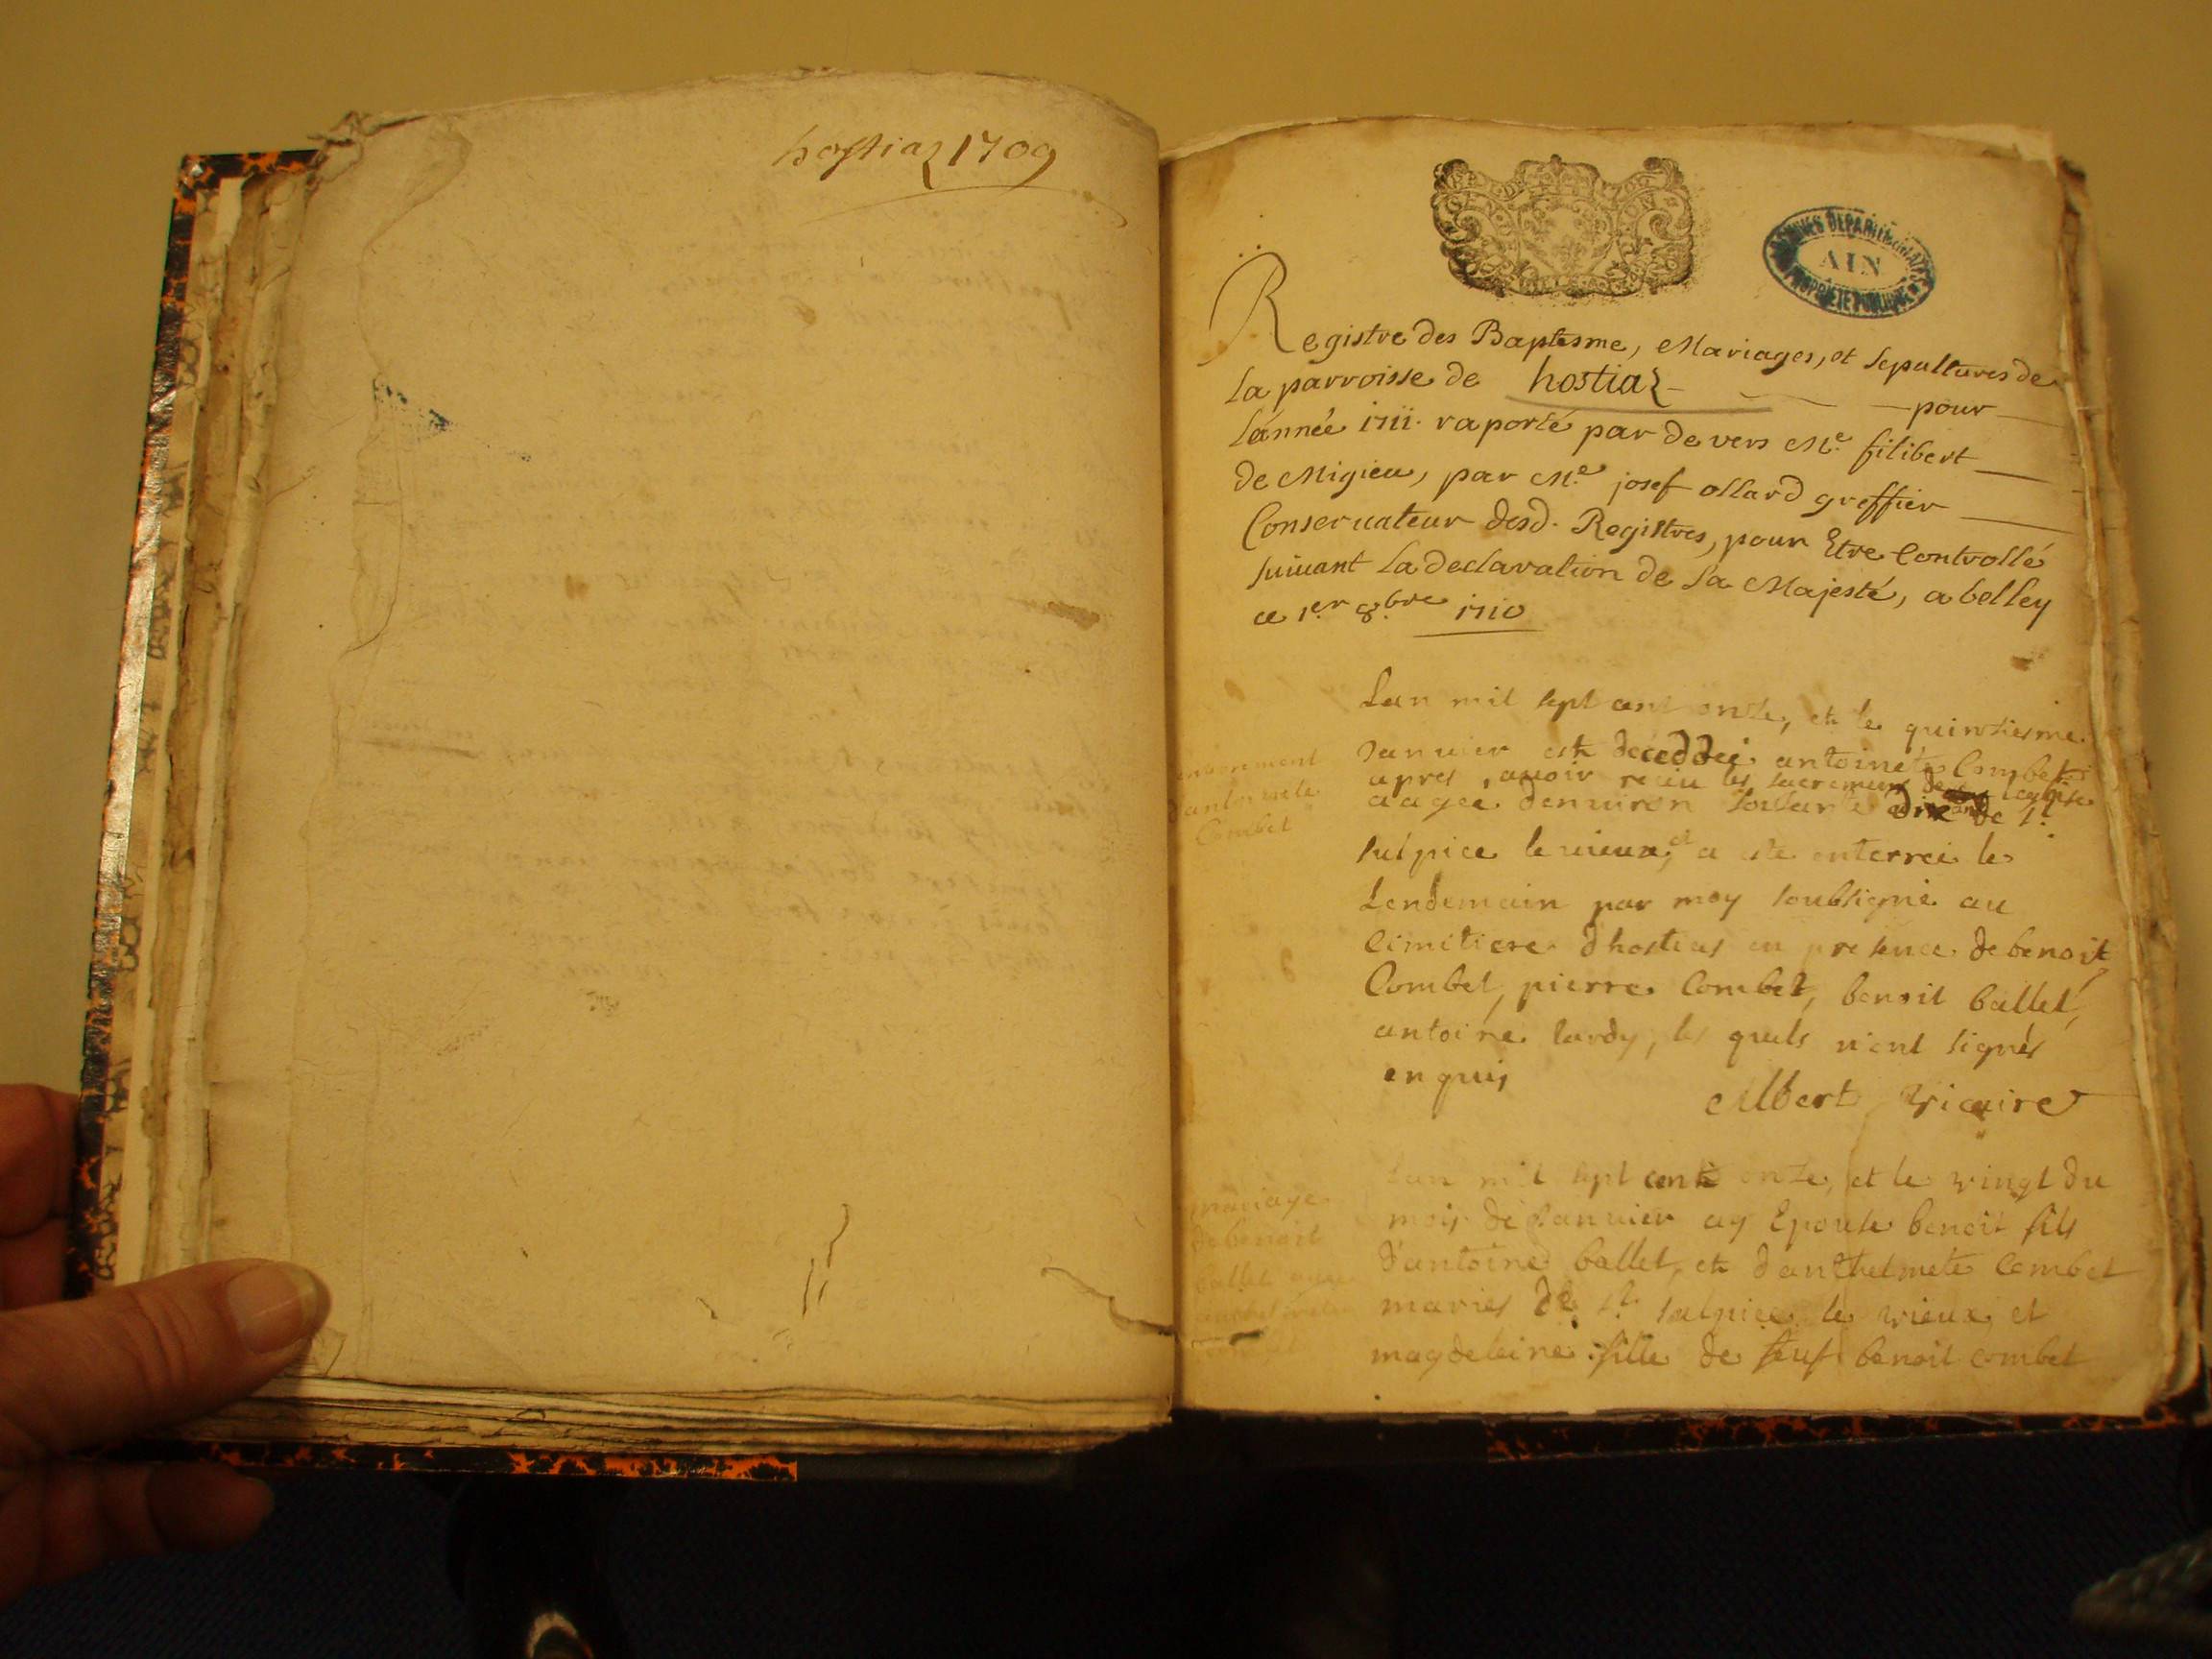 hostiaz 1709
GEN DIJON
ARCHIVES DEPARTEMENTALES
AIN
PROPRIETE PUBLIQUE
Registre des Baptesme, Mariages, et sepultures de
la parroisse de hostiaz pour
lánnée 1711. raporté par devers Me. filibert
de Migieu, par Me. josef ollard greffier
Conservateur desd. Registres, pour Etre Controllé
suiuant La declaration de sa Majesté, a belley
ce 1er 8bre 1710
enterrement
d'antoinete
Combet
Lan mil sept cent onze, et le quinziesme
Janvier est deceddeé antoinete Combet
apres avoir receu les sacremens de leglise
aagee denuiron soixante dix ans de st.
sulpice le uieux, et a este enterreé le
Lendemain par moy soubsigné au
Cimitiere dhostias en presence de benoit
Combet, pierre Combet, benoit ballet,
antoine tardy, les quels n'ont signés
enquis
Albert vicaire
mariage
de benoit
ballet avec
Lan mil sept cent onze, et le vingt du
mois de Janvier ay Epousé benoit fils
d'antoine ballet, et d'anthelmete Combet
mariés de st. sulpice le vieux et
magdeleine fille de feuf benoit combet